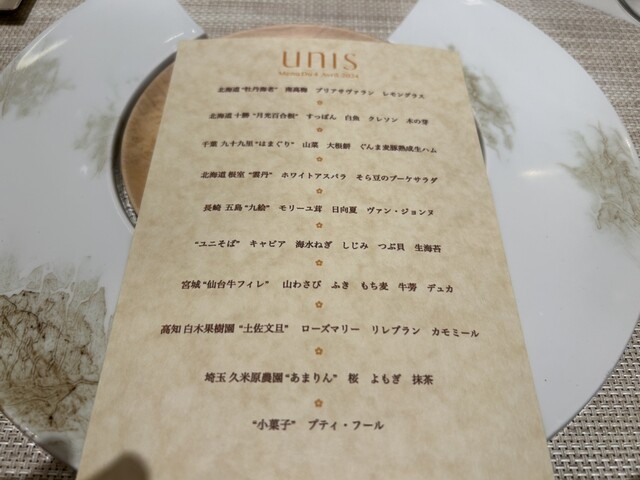 unis
北海道 “牡丹海老” 南高梅 ブリアサヴァラン レモングラス
北海道 十勝 “月光百合根” すっぽん 白魚 クレソン 木の芽
千葉 九十九里 “はまぐり” 山菜 大根餅 ぐんま麦豚熟成生ハム
北海道 根室 “雲丹” ホワイトアスパラ そら豆のブーケサラダ
長崎 五島 “九絵” モリーユ茸 日向夏 ヴァン・ジョンヌ
“ユニそば” キャビア 海水ねぎ しじみ つぶ貝 生海苔
宮城 “仙台牛フィレ” 山わさび ふき もち麦 牛蒡 デュカ
高知 白木果樹園 “土佐文旦” ローズマリー リレブラン カモミール
埼玉 久米原農園 “あまりん” 桜 よもぎ 抹茶
“小菓子” プティ・フール